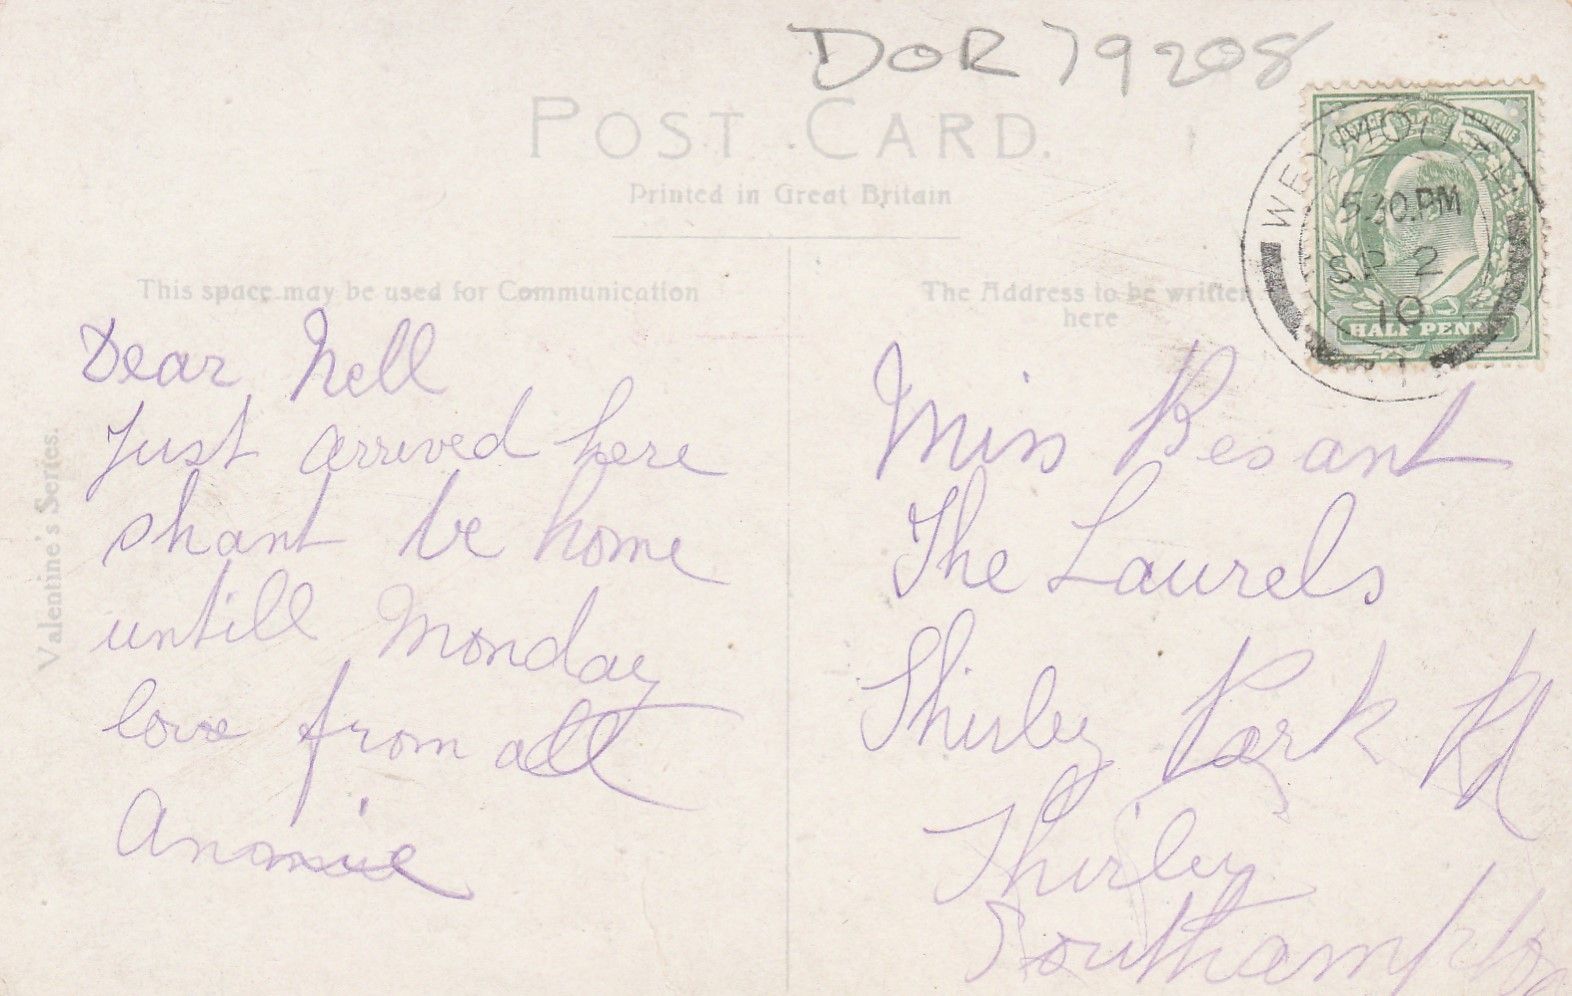 DOR 79208
POST CARD.
Printed in Great Britain
This space may be used for Communication
The Address to be written
here
WEYMOUTH
5 30.PM
SP 2
10
1
POSTAGE REVENUE
HALF PENNY
Valentine's Series.
Dear Nell
Just arrived here
shant be home
untill Monday
love from all
Annie
Miss Besant
The Laurels
Shirley Park Rd
Shirley
Southampton